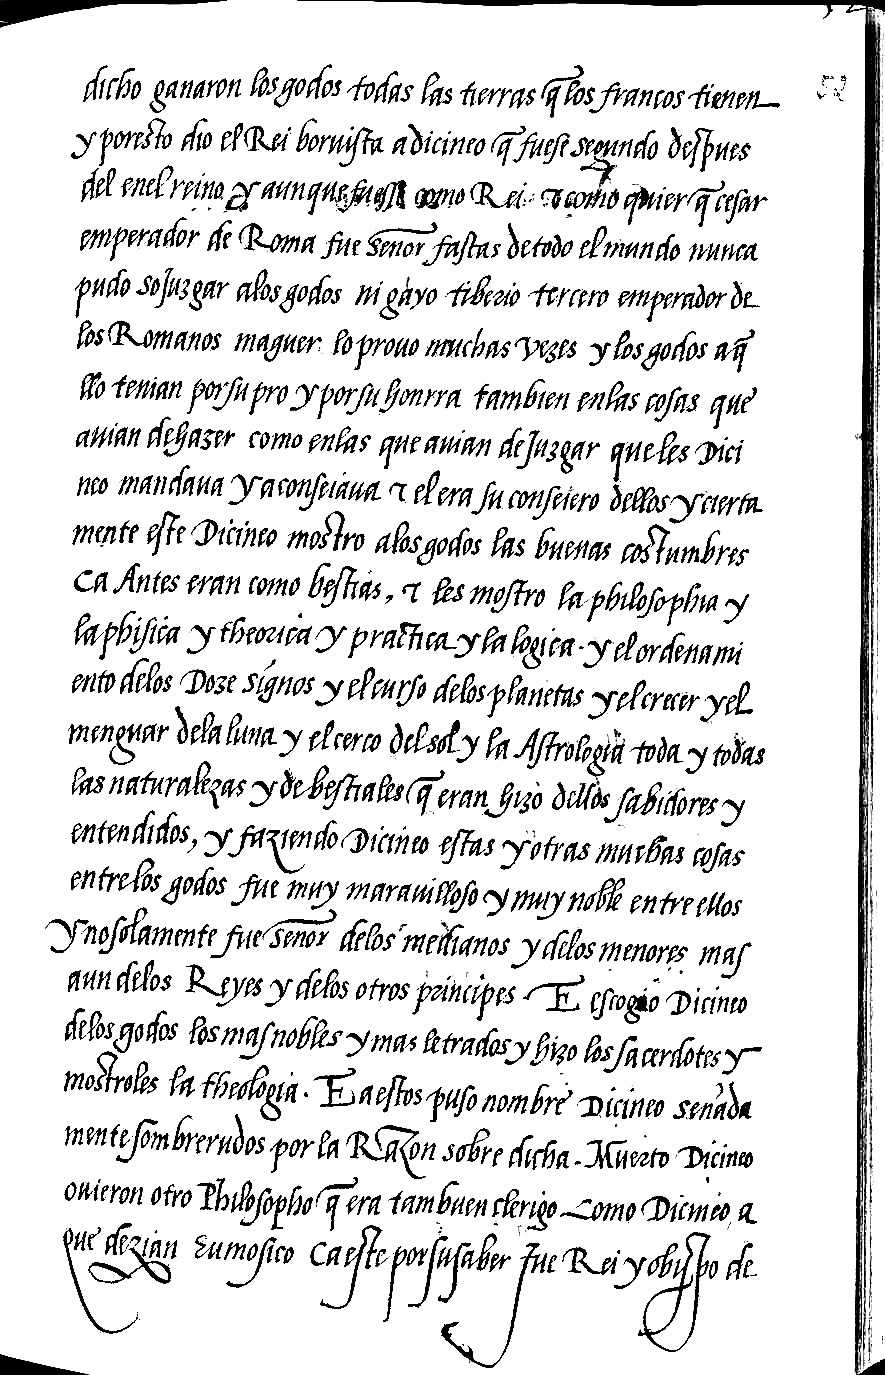 52
dicho ganaron los godos todas las tierras q̃ los francos tienen
y por esto dio el Rei boruista a dicineo q̃ fuese segundo despues
del en el reino y aunque fuese como Rei τ como quier q̃ cesar
emperador de Roma fue señor fastas de todo el mundo nunca
pudo soJuzgar a los godos ni gayo tiberio tercero emperador de
los Romanos maguer lo prouo muchas vezes y los godos aq̃
llo tenian por su pro y por su honrra tambien en las cosas que
auian de hazer como en las que auian de Juzgar que les Dici
neo mandaua y aconseiaua τ el era su conseiero dellos y cierta
mente este Dicineo mostro a los godos las buenas costumbres
Ca Antes eran como bestias, τ les mostro la philosophia y
la phisica y theorica y practica y la logica. y el ordenami
ento de los Doze signos y el curso de los planetas y el crecer y el
menguar de la luna y el cerco del sol y la Astrologia toda y todas
las naturalezas y de bestiales q̃ eran hizo dellos sabidores y
entendidos, y faziendo Dicineo estas y otras muchas cosas
entre los godos fue muy marauilloso y muy noble entre ellos
y no solamente fue señor de los medianos y de los menores mas
aun de los Reyes y de los otros principes. E escogio Dicineo
de los godos los mas nobles y mas letrados y hizo los sacerdotes y
mostroles la theologia. E a estos puso nombre Dicineo señada
mente sombrerudos por la Razon sobre dicha. Muerto Dicineo
ouieron otro Philosopho q̃ era tambuen clerigo Como Dicineo a
que dezian Eumosico Ca este por su saber fue Rei y obispo de